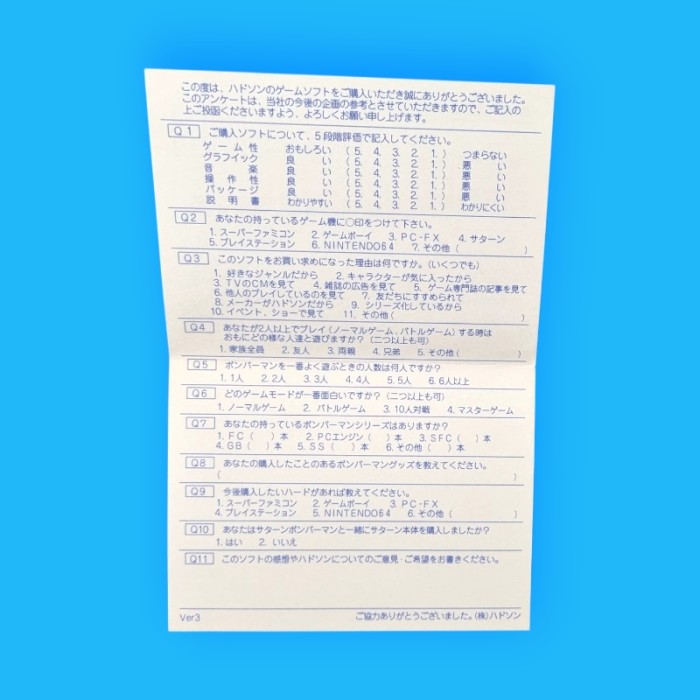 この度は、ハドソンのゲームソフトをご購入いただき誠にありがとうございました。
このアンケートは、当社の今後の企画の参考とさせていただきますので、ご記入の
上ご投函くださいますよう、よろしくお願い申し上げます。
Q1 ご購入ソフトについて、5段階評価で記入してください。
ゲーム性 おもしろい (5. 4. 3. 2. 1.) つまらない
グラフィック 良い (5. 4. 3. 2. 1.) 悪い
音楽 良い (5. 4. 3. 2. 1.) 悪い
操作性 良い (5. 4. 3. 2. 1.) 悪い
パッケージ 良い (5. 4. 3. 2. 1.) 悪い
説明書 わかりやすい (5. 4. 3. 2. 1.) わかりにくい
Q2 あなたの持っているゲーム機に○印をつけて下さい。
1. スーパーファミコン 2. ゲームボーイ 3. PC-FX 4. サターン
5. プレイステーション 6. NINTENDO64 7. その他( )
Q3 このソフトをお買い求めになった理由は何ですか。(いくつでも)
1. 好きなジャンルだから 2. キャラクターが気に入ったから
3. TVのCMを見て 4. 雑誌の広告を見て 5. ゲーム専門誌の記事を見て
6. 他人のプレイしているのを見て 7. 友だちにすすめられて
8. メーカーがハドソンだから 9. シリーズ化しているから
10. イベント、ショーで見て 11. その他( )
Q4 あなたが2人以上でプレイ(ノーマルゲーム、バトルゲーム)する時は
おもにどの様な人達と遊びますか?(二つ以上も可)
1. 家族全員 2. 友人 3. 両親 4. 兄弟 5. その他( )
Q5 ボンバーマンを一番よく遊ぶときの人数は何人ですか?
1. 1人 2. 2人 3. 3人 4. 4人 5. 5人 6. 6人以上
Q6 どのゲームモードが一番面白いですか?(二つ以上も可)
1. ノーマルゲーム 2. バトルゲーム 3. 10人対戦 4. マスターゲーム
Q7 あなたの持っているボンバーマンシリーズはありますか?
1. FC( )本 2. PCエンジン( )本 3. SFC( )本
4. GB( )本 5. SS( )本 6. その他( )本
Q8 あなたの購入したことのあるボンバーマングッズを教えてください。
( )
Q9 今後購入したいハードがあれば教えてください。
1. スーパーファミコン 2. ゲームボーイ 3. PC-FX
4. プレイステーション 5. NINTENDO64 6. その他( )
Q10 あなたはサターンボンバーマンと一緒にサターン本体を購入しましたか?
1. はい 2. いいえ
Q11 このソフトの感想やハドソンについてのご意見・ご希望をお書きください。
Ver3 ご協力ありがとうございました。(株)ハドソン